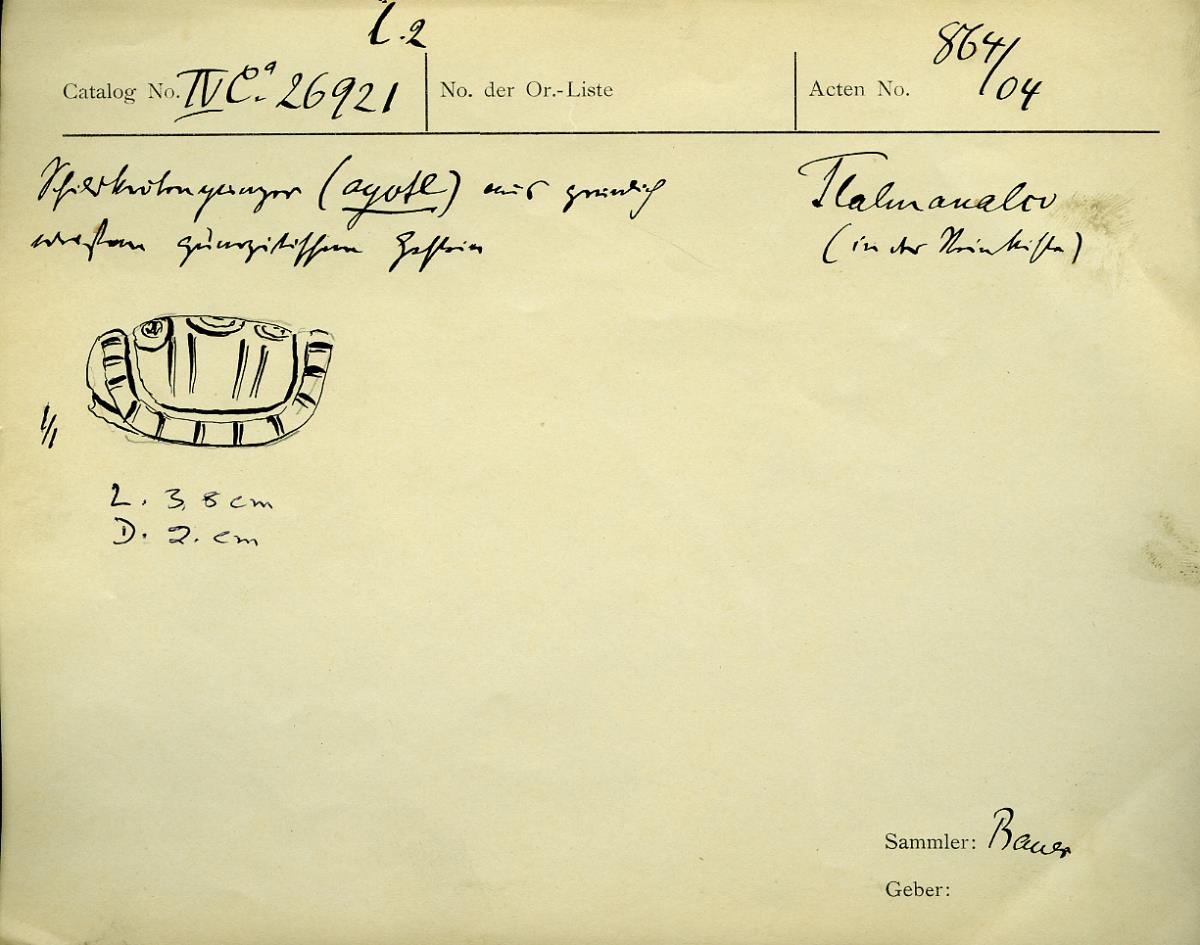 l. 2
Catalog No. IV Ca. 26921
No. der Or.-Liste
Acten No. 864/04
Schildkrötenpanzer (ayotl) aus grünlich
weissem quarzitischem Gestein
Tlalmanalco
(in der Steinkiste)
1/1
L. 3,8 cm
D. 2. cm
Sammler: Bauer
Geber: